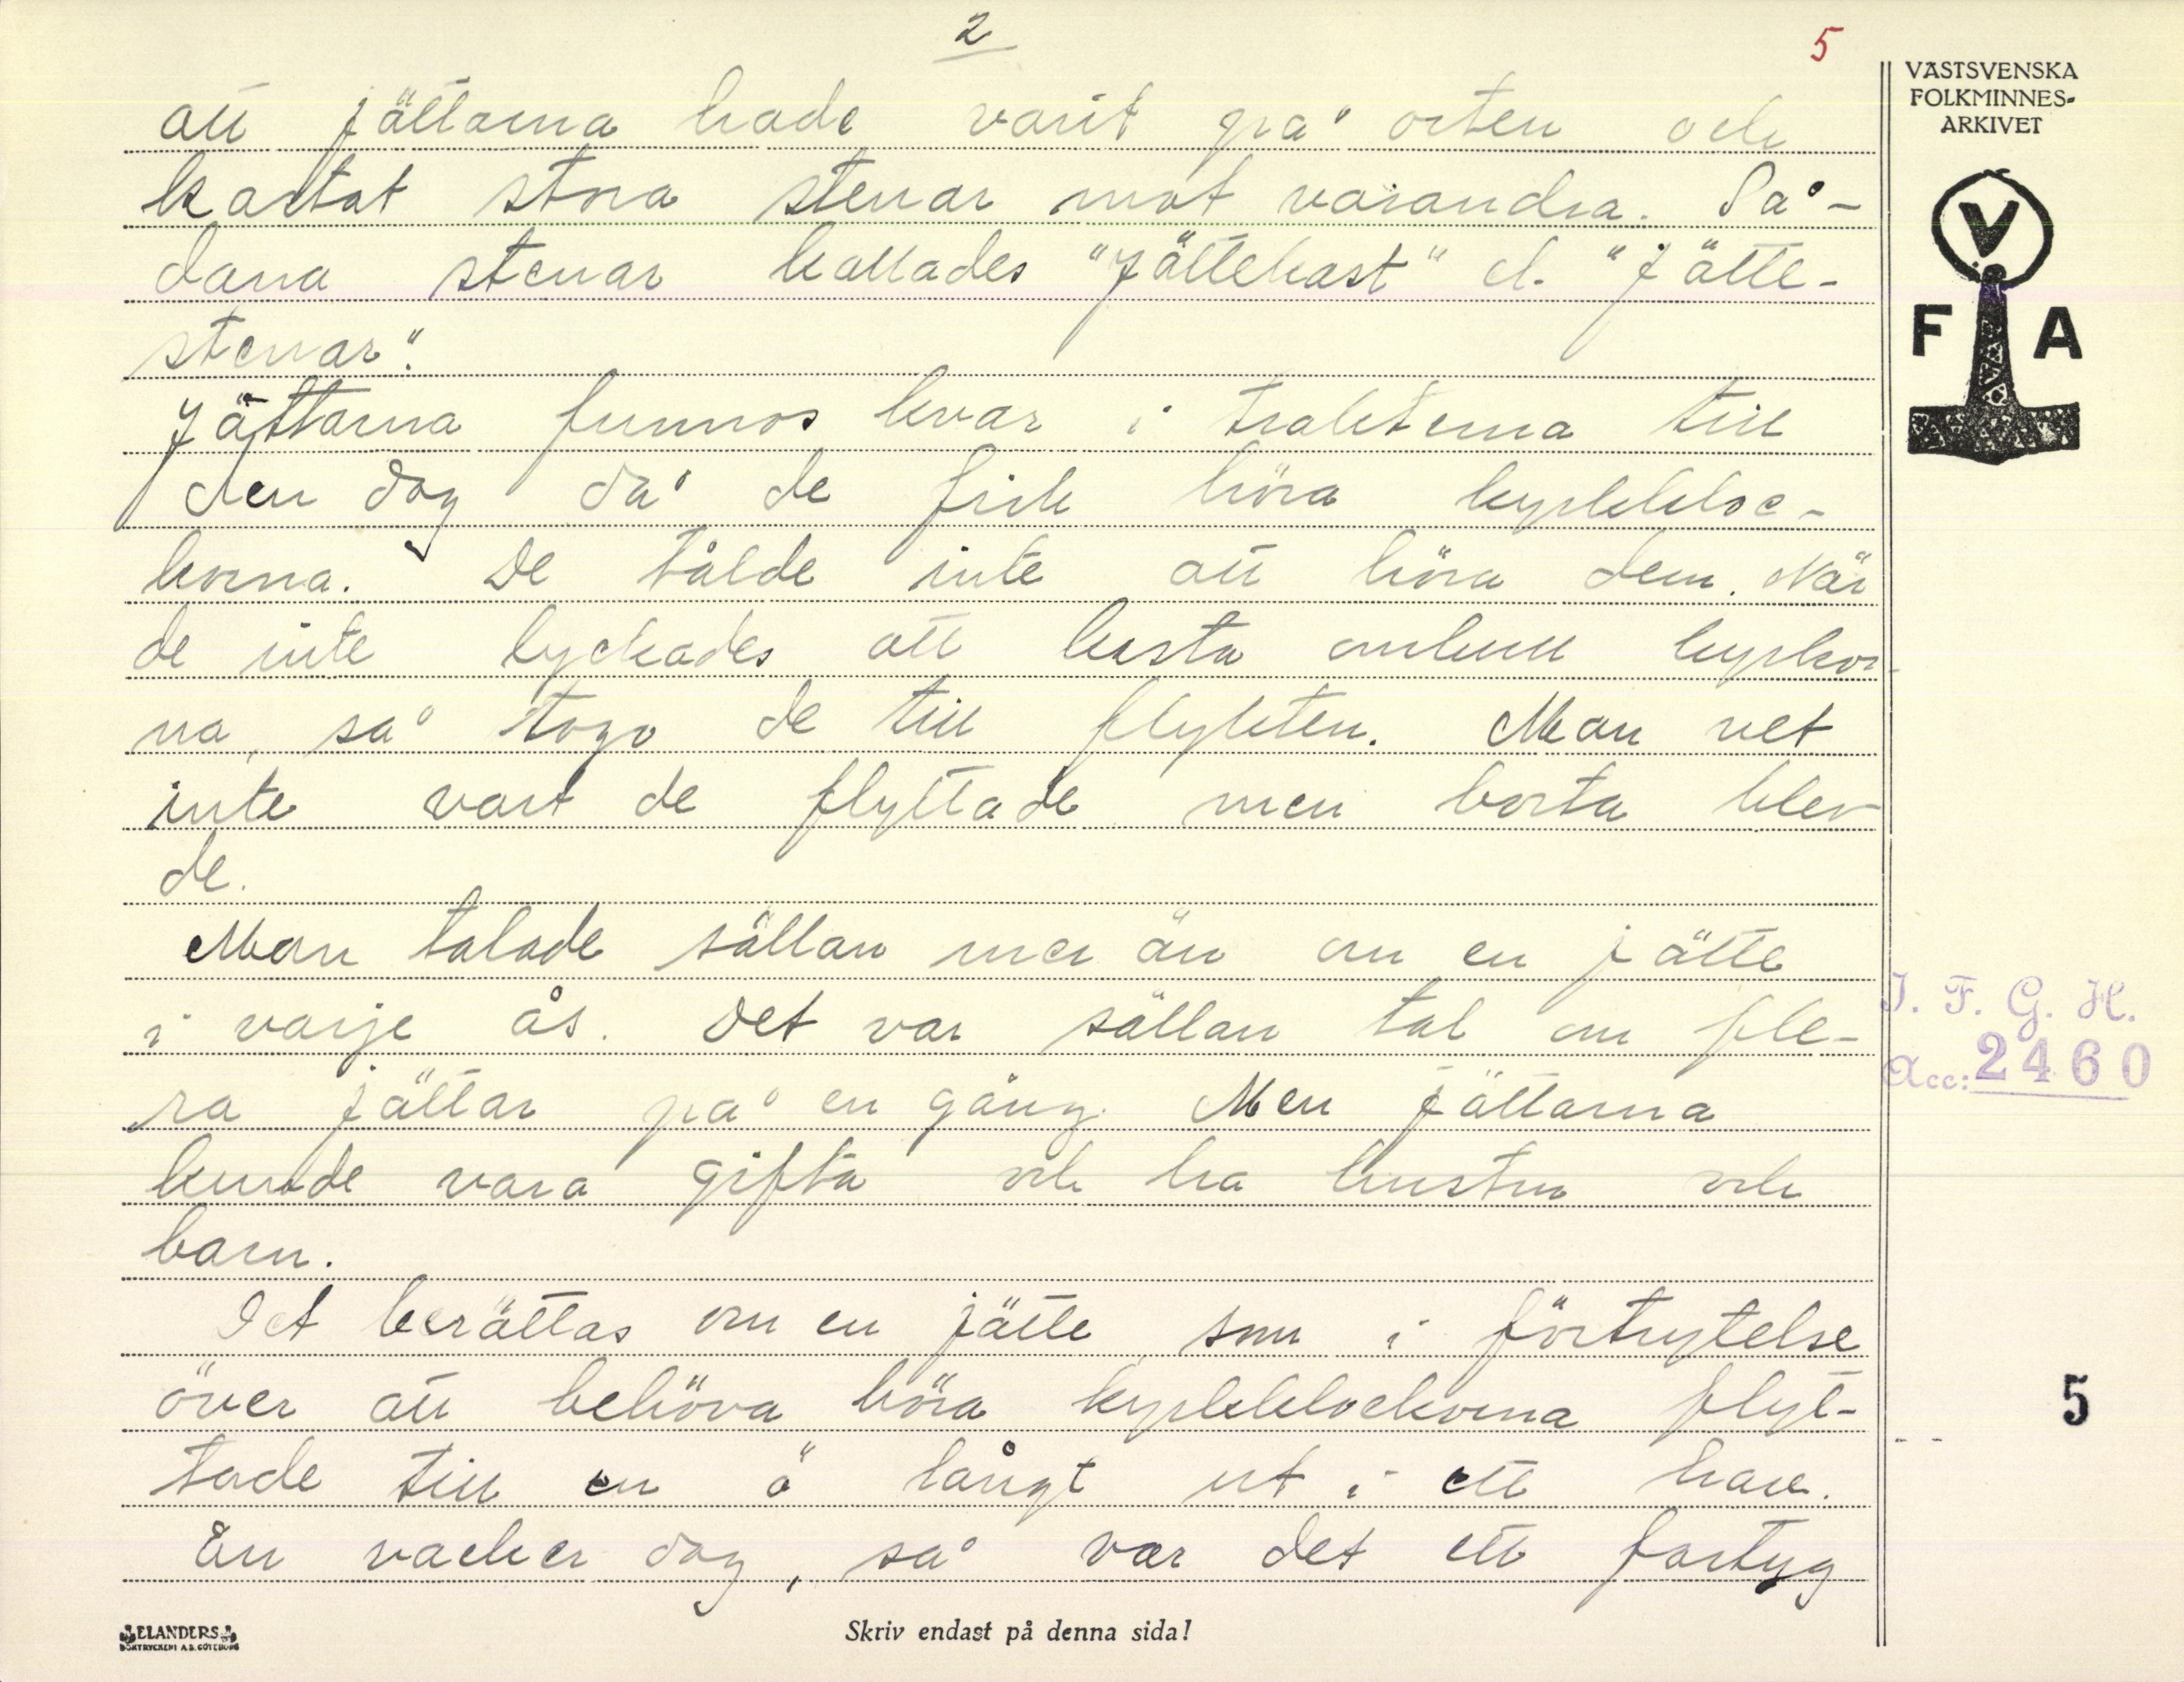 2
5
att jättarna hade varit på orten och
kastat stora stenar mot varandra. Så-
dana stenar kallades "Jättekast" el. "Jätte-
stenar".
Jättarna funnos kvar i trakterna till
den dag då de fick höra kyrkkloc-
korna. De tålde inte att höra dem. När
de inte lyckades att kasta omkull kyrkor-
na, så togo de till flykten. Man vet
inte vart de flyttade men borta blev
de.
Man talade sällan mer än om en jätte
i varje ås. Det var sällan tal om fle-
ra jättar på en gång. Men jättarna
kunde vara gifta och ha hustru och
barn.
Det berättas om en jätte, som i förtrytelse
över att behöva höra kyrkklockorna flyt-
tade till en ö långt ut i ett hav.
En vacker dag, så var det ett fartyg
VÄSTSVENSKA
FOLKMINNES-
ARKIVET
V
F A
I. F. G. H.
Acc: 2460
5
ELANDERS
BOKTRYCKERI A.B. GÖTEBORG
Skriv endast på denna sida!